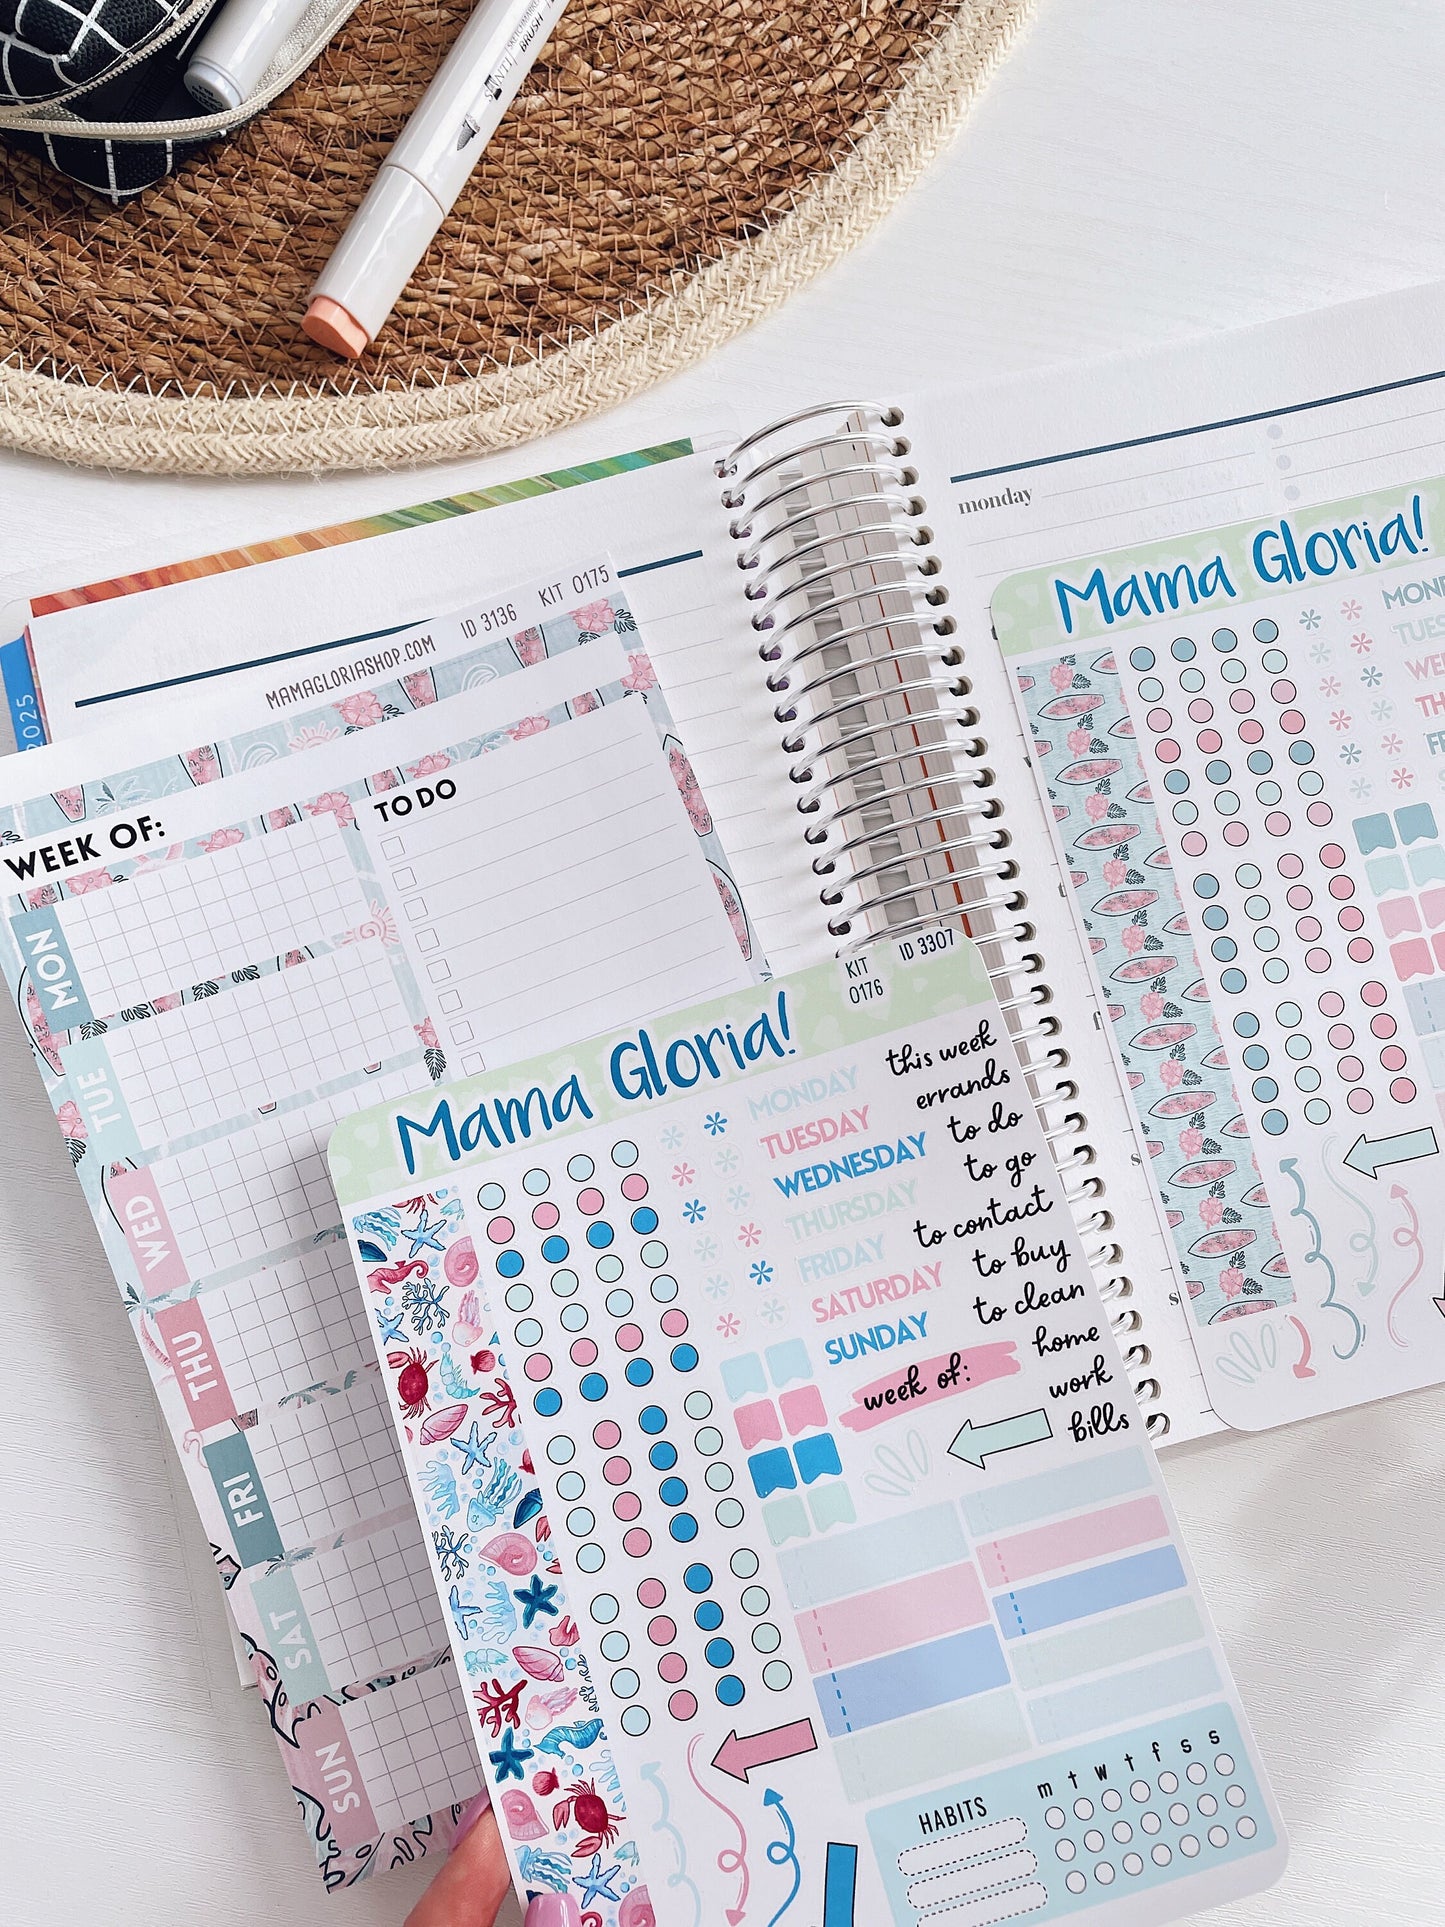 SANTI SKETCHMARKER
BRUSH
2025
MAMAGLORIASHOP.COM ID 3136 KIT 0175
WEEK OF:
TO DO
MON
TUE
WED
THU
FRI
SAT
SUN
monday
Mama Gloria!
MON
TUES
WE
TH
F
KIT
0176
ID 3307
Mama Gloria!
MONDAY
TUESDAY
WEDNESDAY
THURSDAY
FRIDAY
SATURDAY
SUNDAY
this week
errands
to do
to go
to contact
to buy
to clean
home
work
bills
week of:
HABITS
m t w t f s s